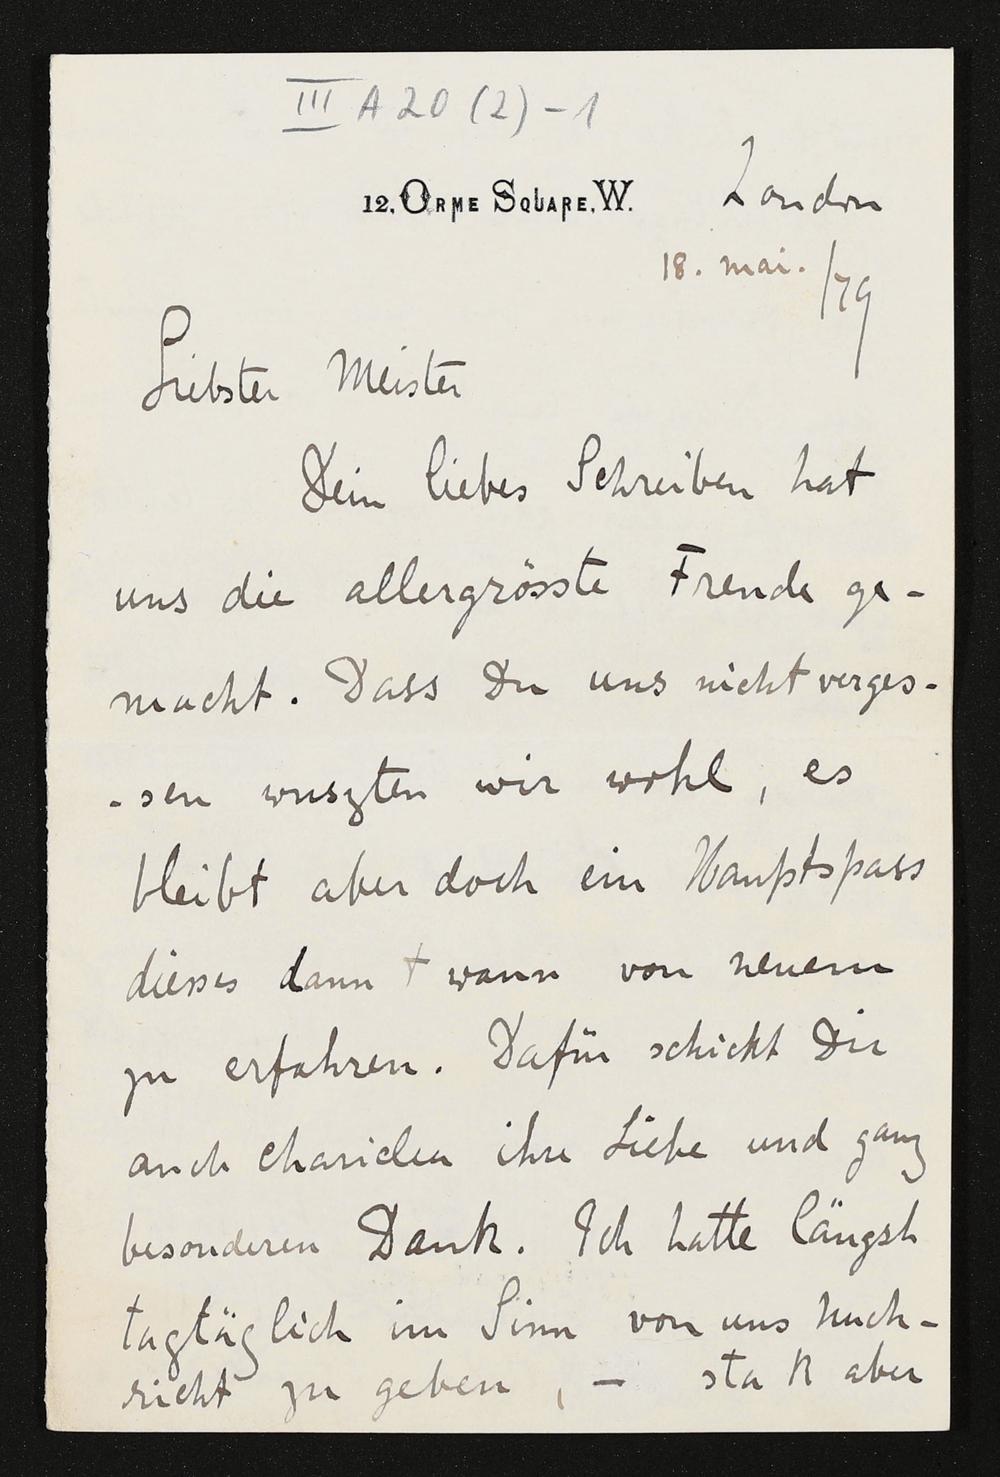 III A 20 (2) - 1
12, Orme Square, W.
London
18. mai. /79
Liebster Meister
Dein liebes Schreiben hat
uns die allergrösste Freude ge-
macht. Dass Du uns nicht verges-
-sen wuszten wir wohl, es
bleibt aber doch ein Hauptspass
dieses dann + wann von neuem
zu erfahren. Dafür schickt Dir
auch Chariclea ihre Liebe und ganz
besonderen Dank. Ich hatte längst
tagtäglich im Sinn von uns Nach-
richt zu geben, - stak aber